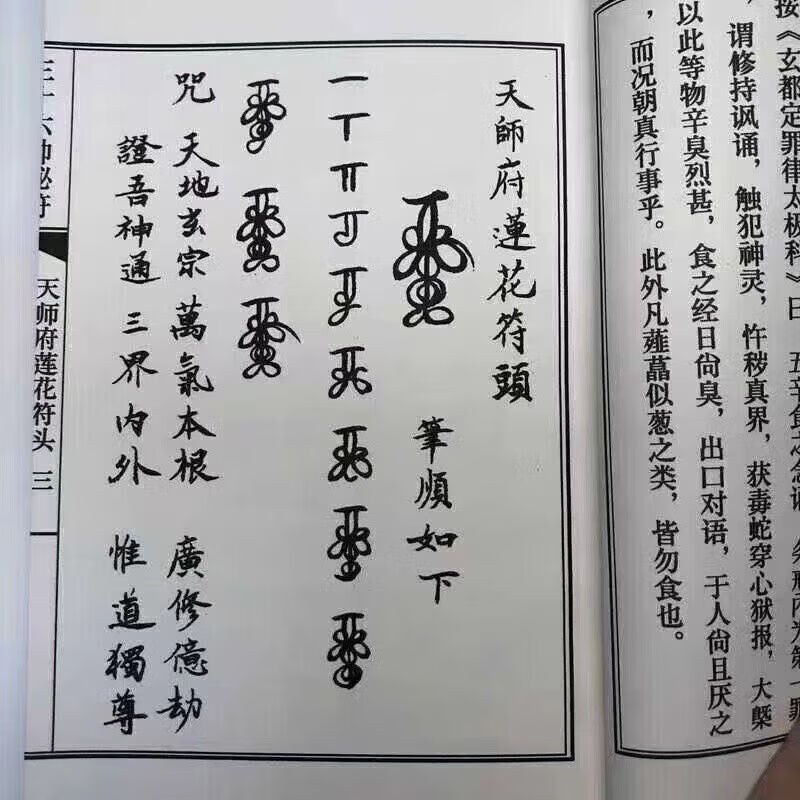 按《玄都定罪律太极科》曰
，谓修持讽诵，触犯神灵，忤秽真界，获毒蛇穿心狱报，大槩
以此等物辛臭烈甚，食之经日尚臭，出口对语，于人尚且厌之
，而况朝真行事乎。此外凡薤藠似葱之类，皆勿食也。
天師府蓮花符頭
筆順如下
咒 天地玄宗 萬氣本根 廣修億劫
證吾神通 三界内外 惟道獨尊
天师府莲花符头 三